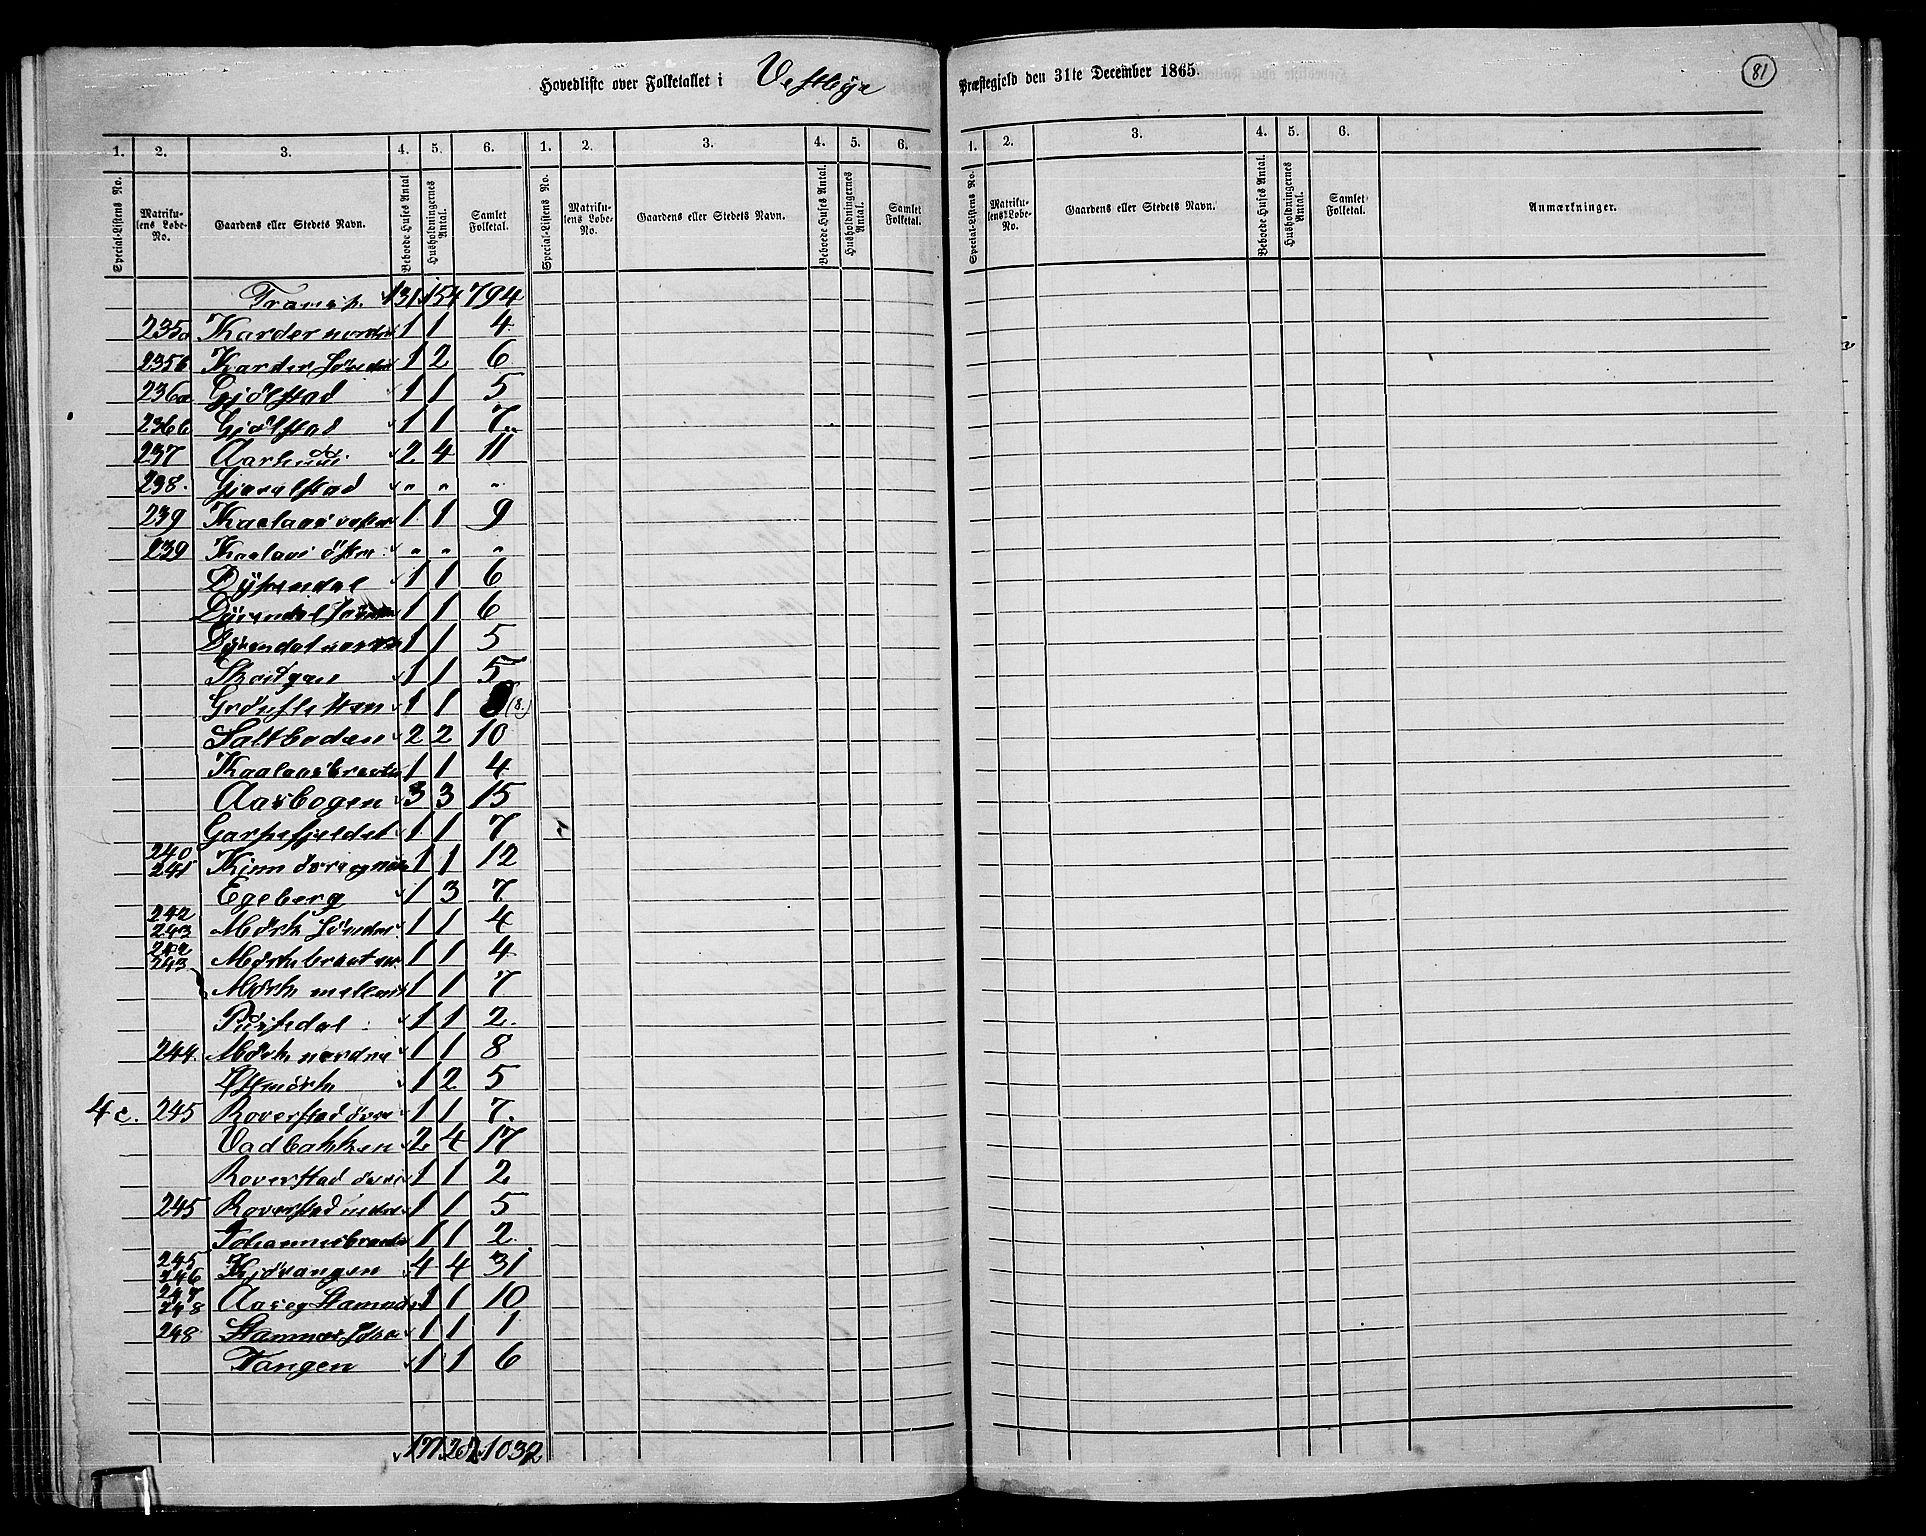 Hovedliste over Folketallet i Vestby
1. 2. 3. 4. 5. 6. 1. 2. 3. 4. 5. 6.
Special-Listens No. Matrikulens Løbe-No. Gaardens eller Stedets Navn. Beboede Huses Antal Husholdningernes Antal. Samlet Folketal. Special-Listens No. Matrikulens Løbe-No. Gaardens eller Stedets Navn. Beboede Huses Antal. Husholdningernes Antal. Samlet Folketal.
Transp. 131 154 794
235a Karder nordre 1 1 4
235b Karder søndre 1 2 6
236a Gjølstad 1 1 5
236b Gjølstad 1 1 7
237 Aarhuus 2 4 11
238. Gjøvalstad " " "
239 Kaalaas vestre 1 1 9
239 Kaalaas østre " " "
Dyrendal 1 1 6
Dyrendal søndre 1 1 6
Dyrendal nordre 1 1 5
1 1 5
Grønsletten 1 1 (8.)
Saltboden 2 2 10
Kaalaasbraaten 1 1 4
Aasbogen 3 3 15
Garhefjeldet 1 1 7
240 241 Kinn øvre og nedre 1 1 12
Egeberg 1 3 7
242 243 Mørk søndre 1 1 4
242 243 Mørkbraaten 1 1 4
Mørk mellem 1 1 7
1 1 2.
244. Mørk nordre 1 1 8
1 2 5
4c. 245 Roverstad øvre 1 1 7.
Vadbakken 2 4 17
Roverstad øvre 1 1 2
245 Roverstad nedre 1 1 5
Johannesbraaten 1 1 2
245 246 Kjøvangen 4 4 31
247 248 Aas og Stamnæs 1 1 10
248 Stamnæs søndre 1 1 1
Tangen 1 1 6
177 207 1032
Præstegjeld den 31te December 1865.
81
1. 2. 3. 4. 5. 6.
Special-Listens No. Matrikulens Løbe-No. Gaardens eller Stedets Navn. Beboede Huses Antal. Husholdningernes Antal. Samlet Folketal. Anmærkninger.